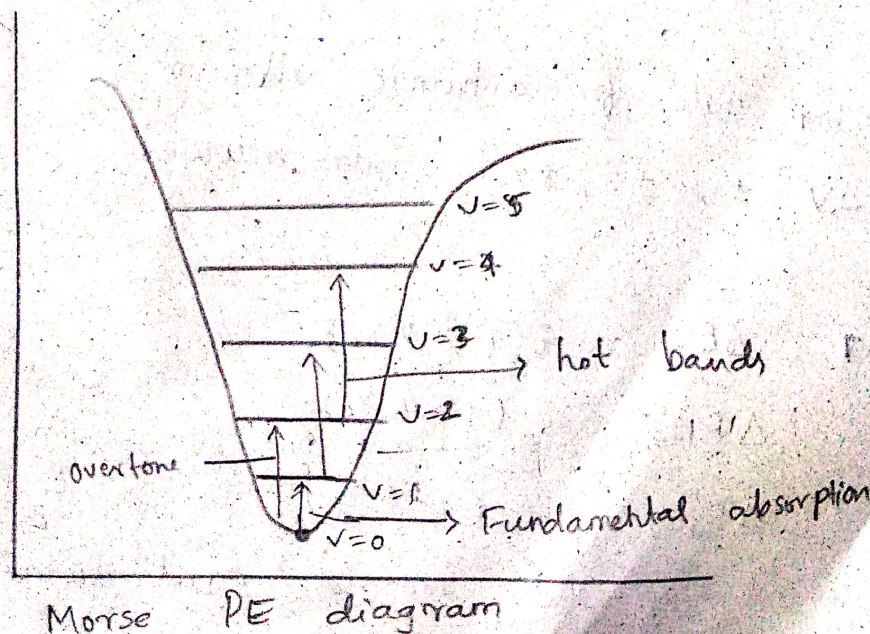 V=5
V=4
V=3
hot bands
V=2
overtone
V=1
Fundamental absorption
V=0
Morse PE diagram